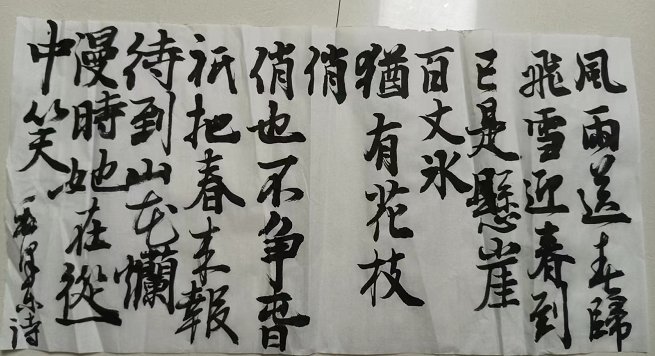 風雨送春歸
飛雪迎春到
已是懸崖
百丈冰
猶有花枝
俏
俏也不争春
祇把春来報
待到山花爛
漫時她在從
中笑
毛泽东诗